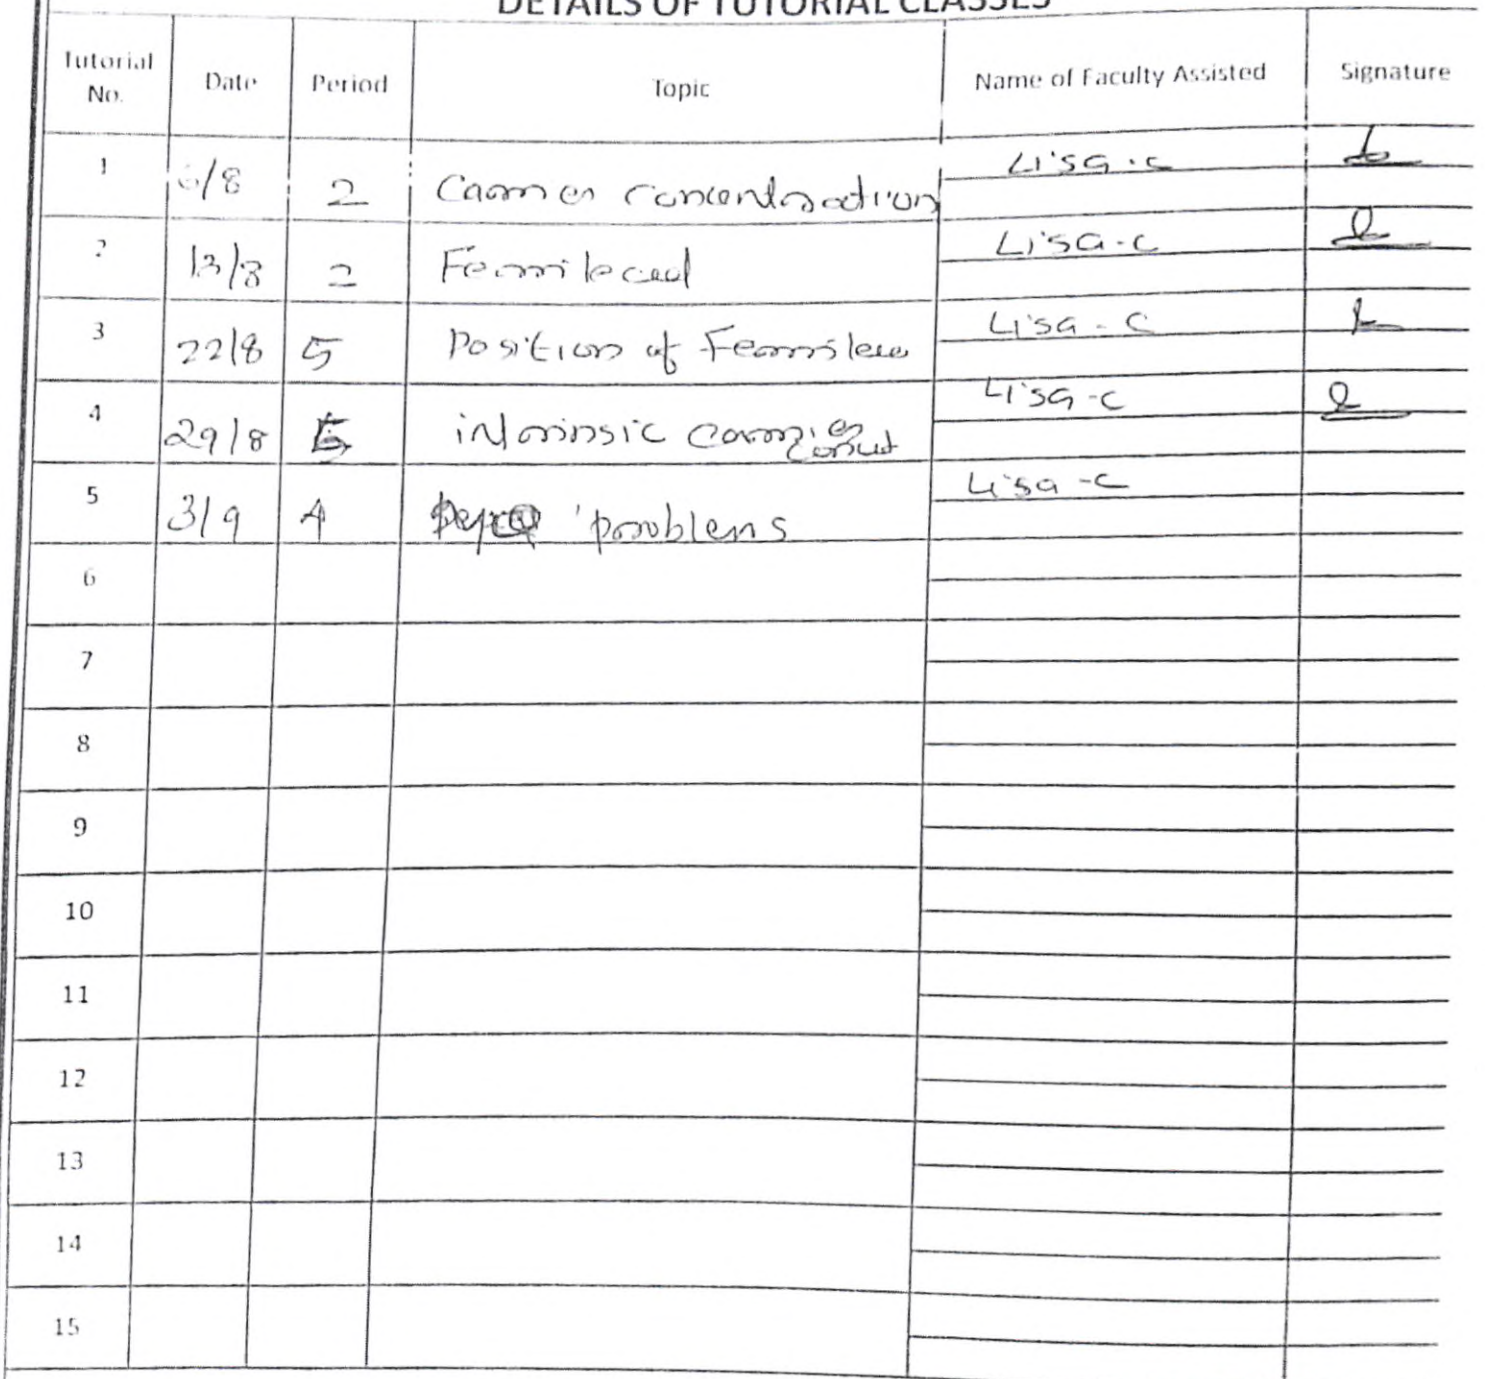 DETAILS OF TUTORIAL CLASSES
Tutorial No. Date Period Topic Name of Faculty Assisted Signature
1 6/8 2 Carrier concentration Lisa-c
2 13/8 2 Fermi level Lisa-c
3 22/8 5 Position of Fermi level Lisa-c
4 29/8 5 intrinsic carrier conct Lisa-c
5 3/9 4 problems Lisa-c
6
7
8
9
10
11
12
13
14
15